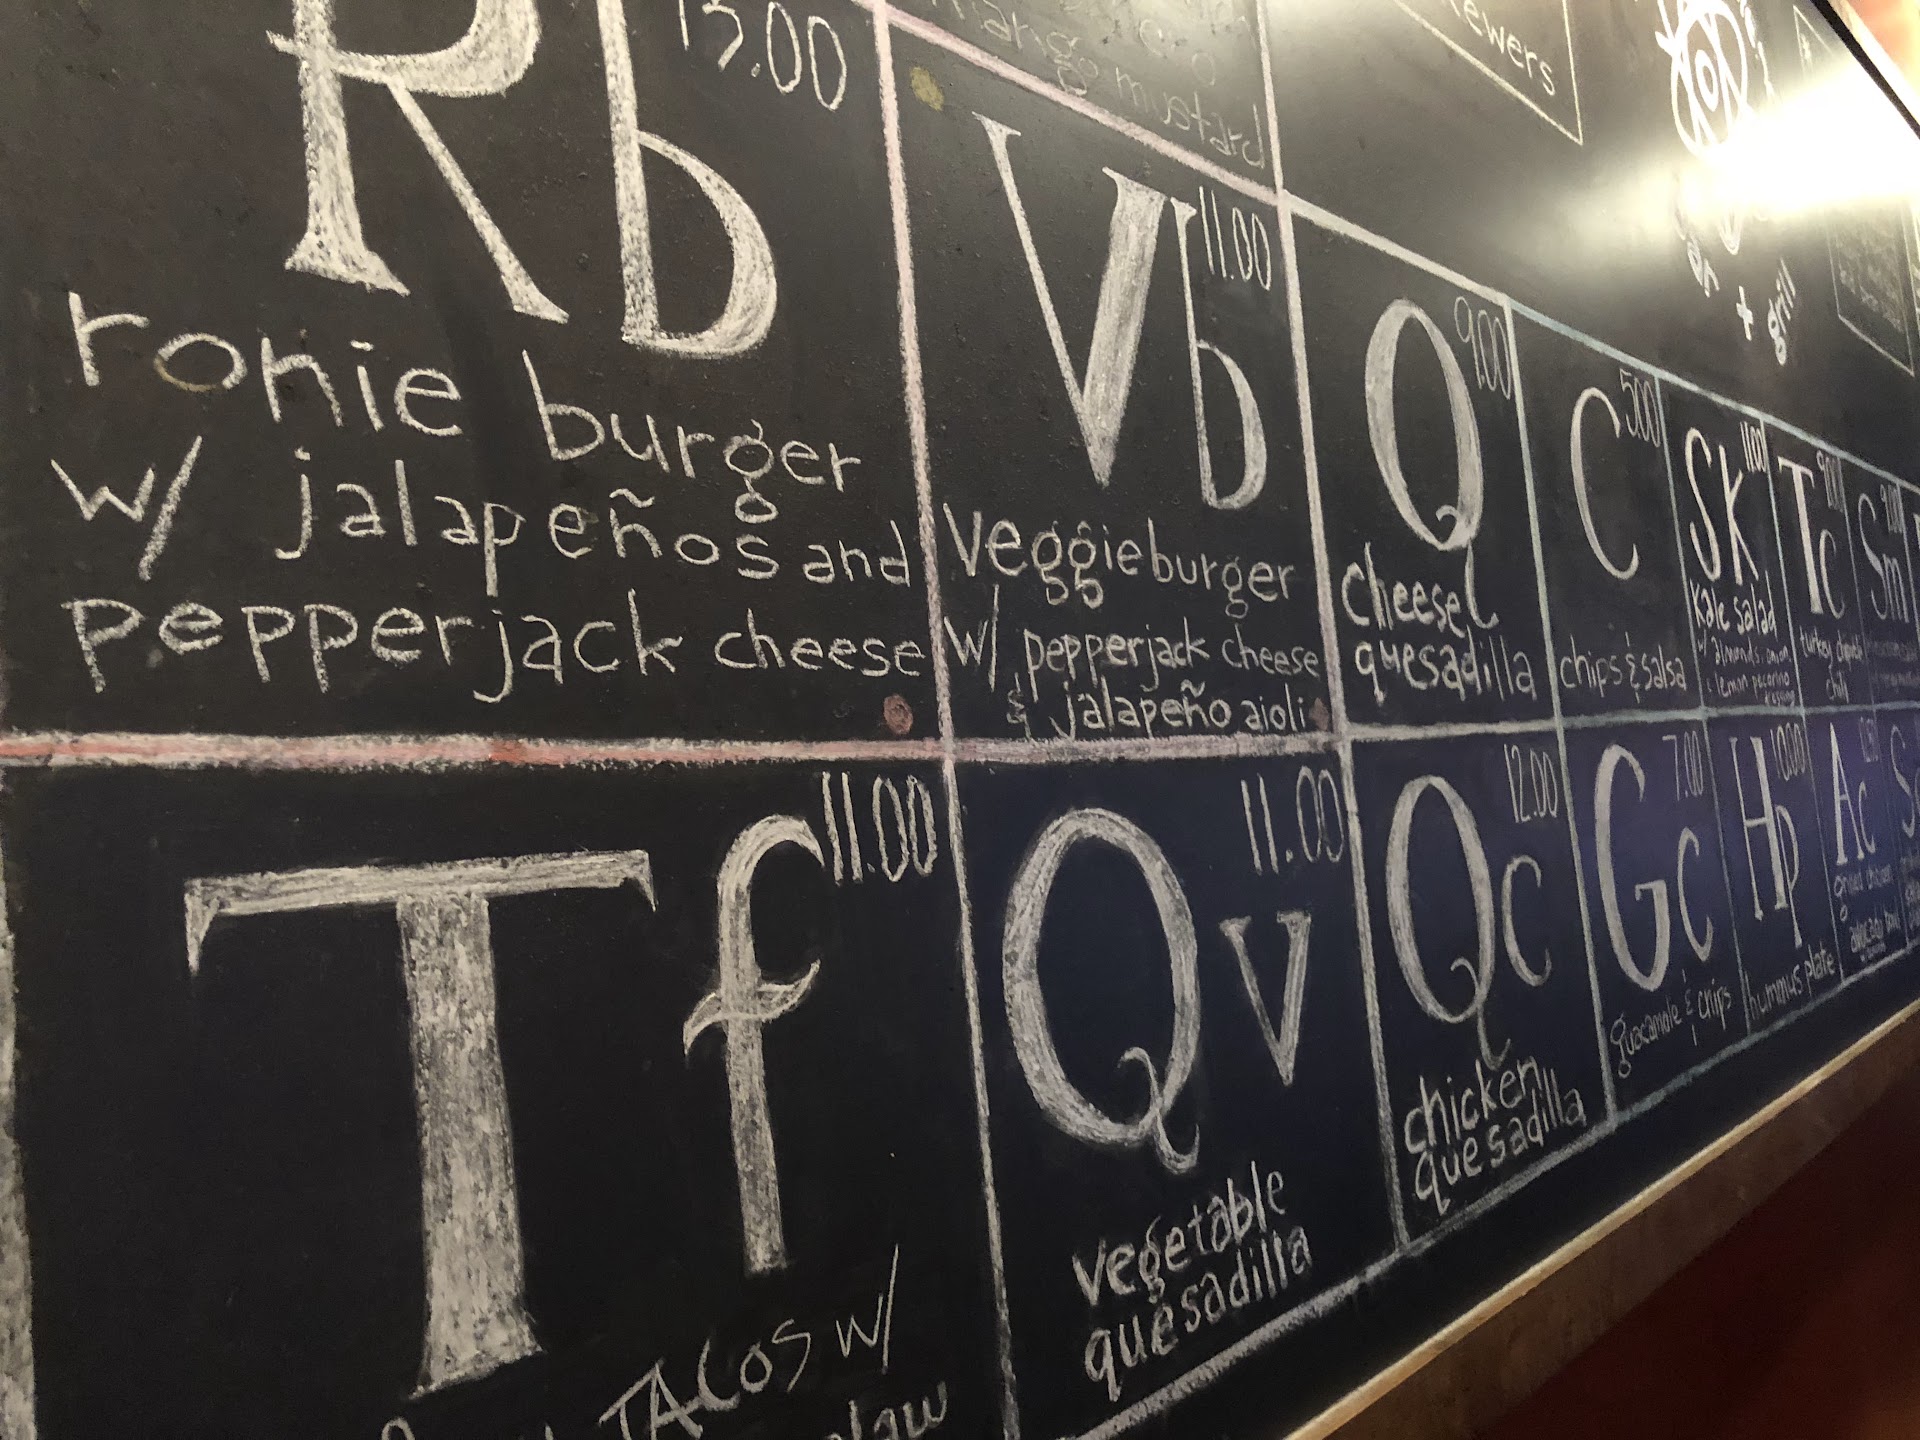 mango mustard
ewers
+ grill
Rb
13.00
ronie burger
w/ jalapeños and
pepperjack cheese
Vb
11.00
veggie burger
w/ pepperjack cheese
& jalapeño aioli
Q
9.00
cheese
quesadilla
C
5.00
chips & salsa
SK
11.00
kale salad
w/ almonds, onion,
& lemon pecorino
Tc
9.00
turkey chipotle
chili
Sm
Tf
11.00
TACOS w/
slaw
Qv
11.00
vegetable
quesadilla
Qc
12.00
chicken
quesadilla
Gc
7.00
guacamole & chips
Hp
10.00
hummus plate
Ac